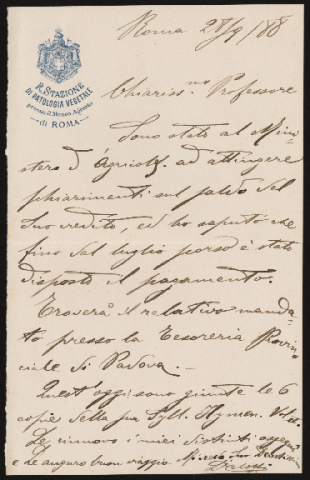 R. STAZIONE
DI PATOLOGIA VEGETALE
presso il Museo Agrario
di ROMA
Roma 28/9/88
Chiariss.mo Professore
Sono stato al Mini-
stero d'Agricolt. ad attingere
schiarimenti sul saldo del
suo credito, ed ho saputo che
fino dal luglio scorso è stato
disposto il pagamento.
Troverà il relativo manda-
to presso la Tesoreria Provin-
ciale di Padova. —
Quest'oggi sono giunte le 6
copie della sua Syll. Hymen. Vol.
Le rinnovo i miei distinti ossequi
e Le auguro buon viaggio.